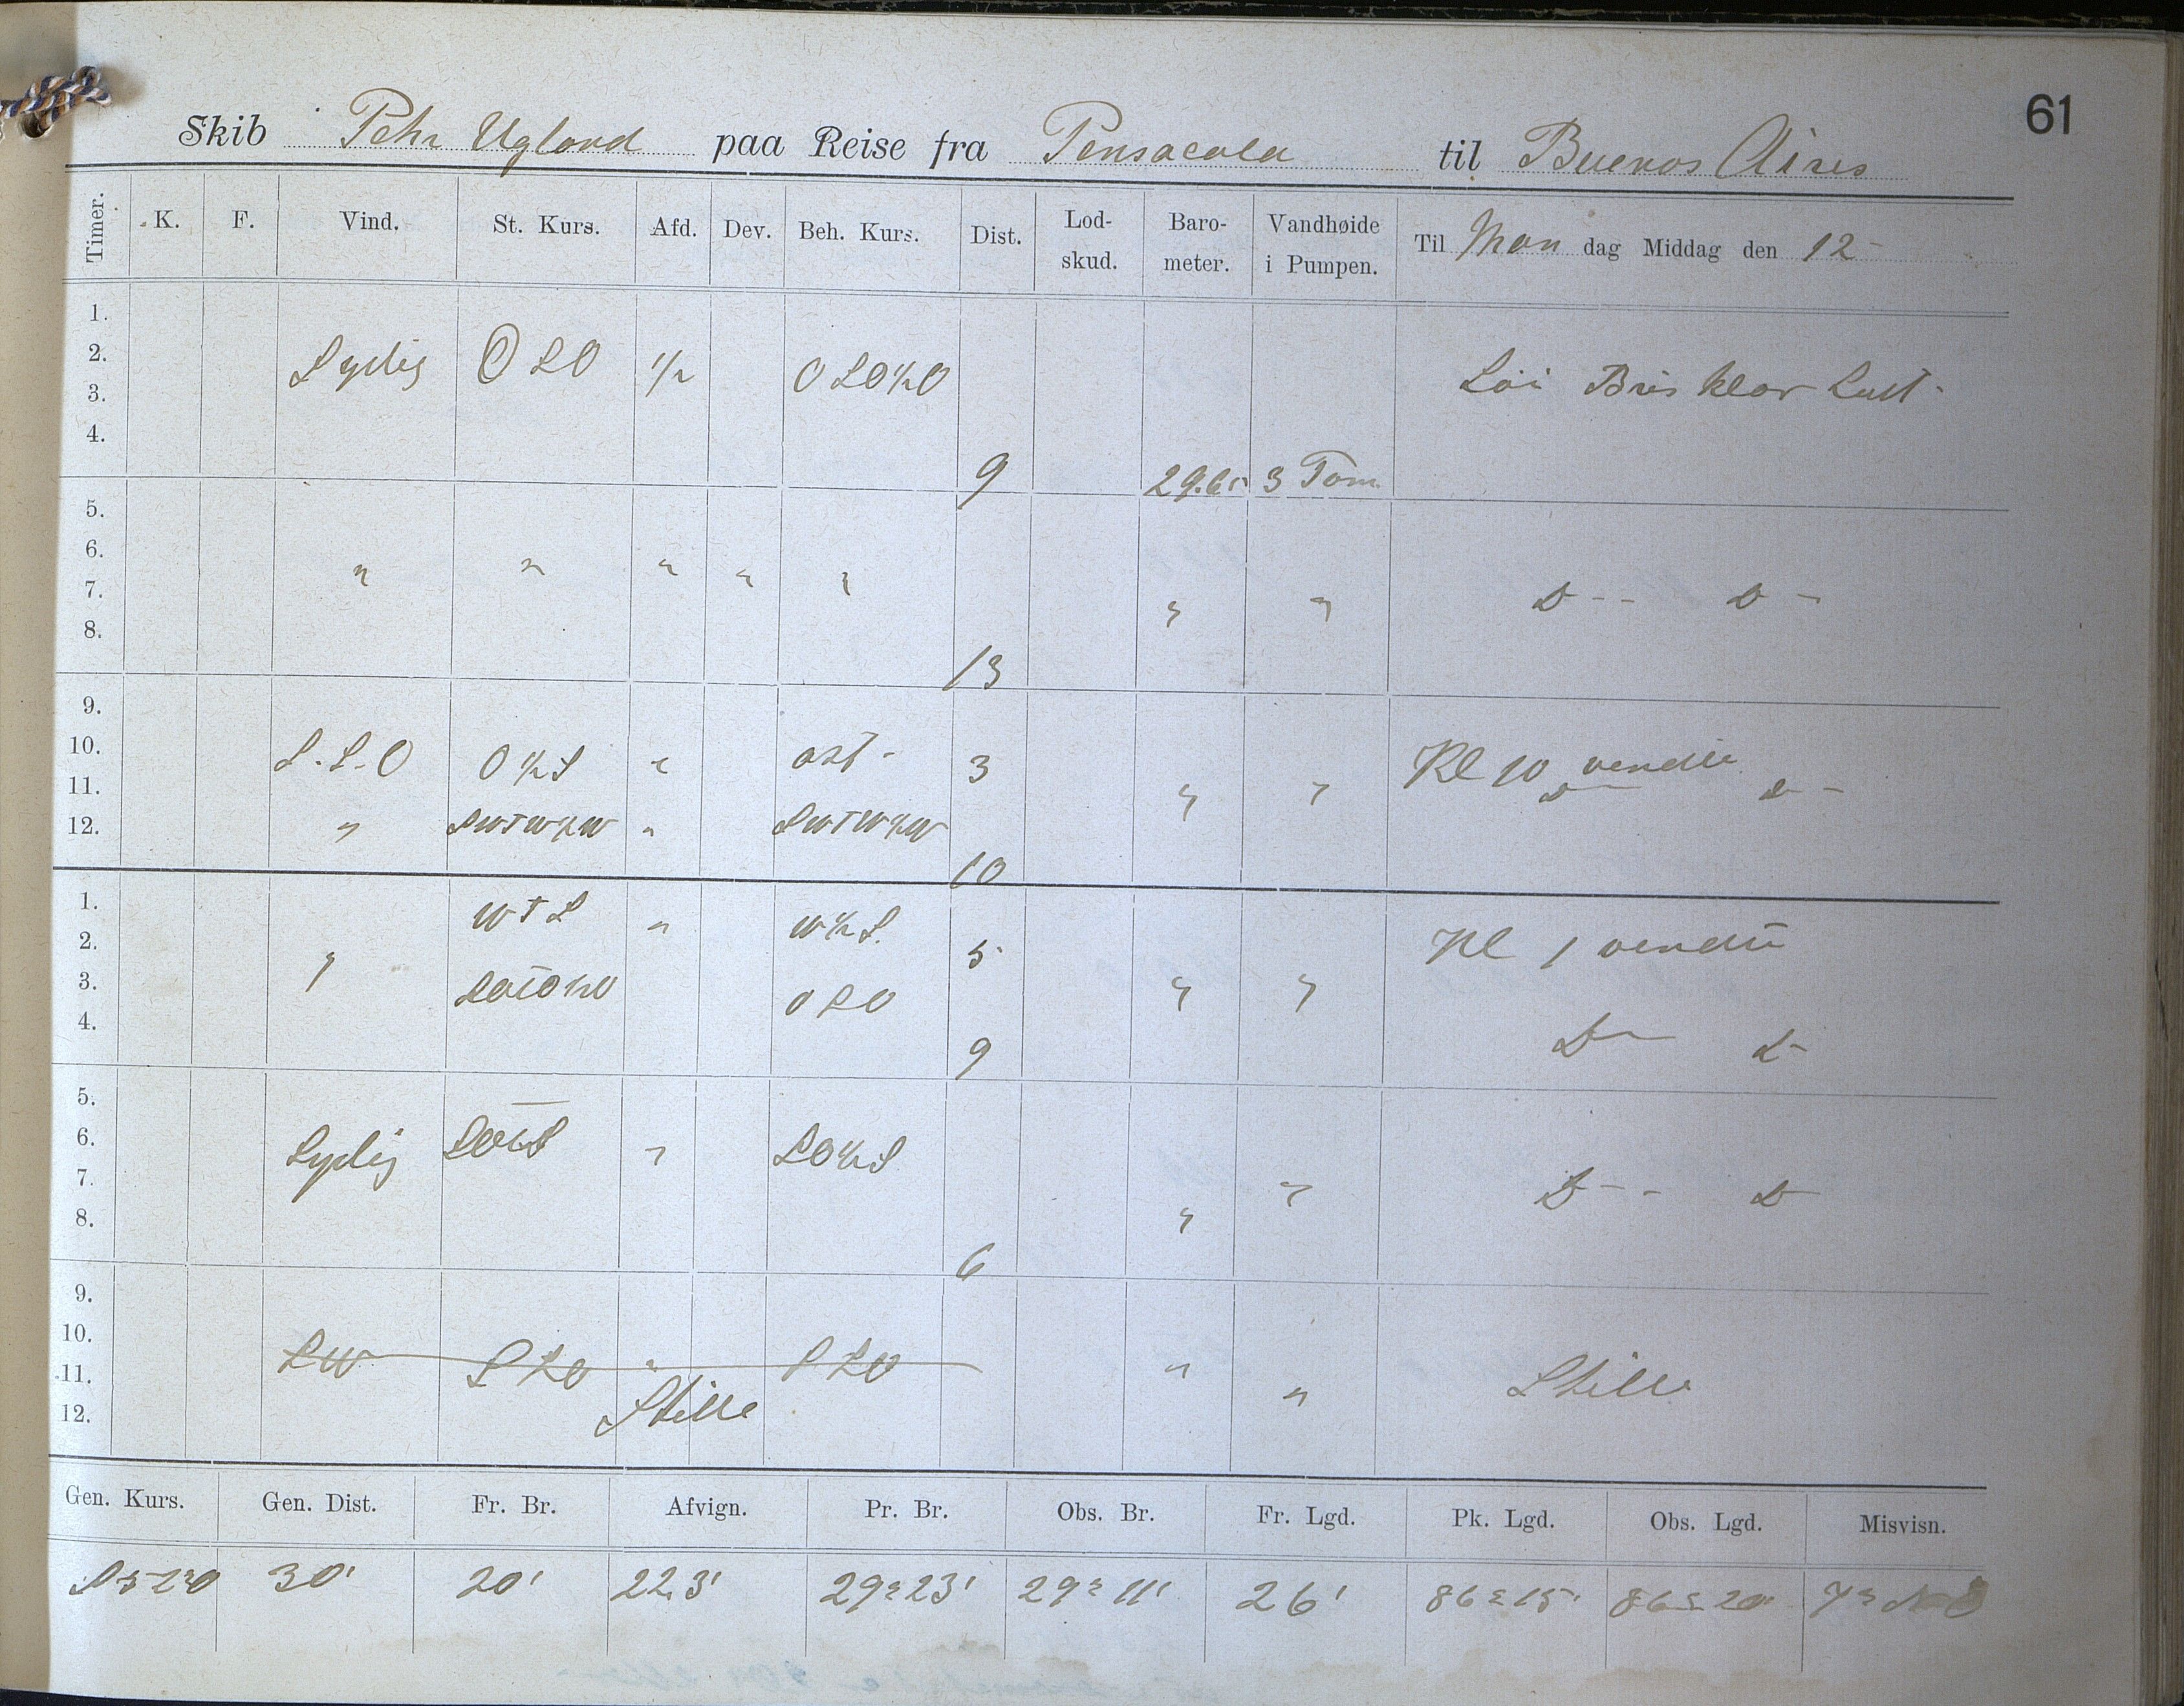 61
Skib Pehr Ugland paa Reise fra Pensacola til Buenos Aires
Timer. K. F. Vind. St. Kurs. Afd. Dev. Beh. Kurs. Dist. Lod-skud. Baro-meter. Vandhøide i Pumpen. Til Man dag Middag den 12-
1.
2. Sydlig OSO 1/2 OSO½O Löi Bris klar Luft-
3.
4.
9 29.65 3 Tom.
5.
6. " " " " "
7. " " D-- D-
8.
13
9.
10. S.S.O O½S " ost- 3 Kl 10 vendte
11. " " D- D-
12. " SWTW½W " SWTW½W
10
1. WTS " W½S.
2. " 5 Kl 1 vendte
3. SOTO½O OSO " "
4. D- D-
9
5.
6. Sydlig " SO½S
7. " D-- D-
8. "
6
9.
10. SW SSO " SSO "
11. Stille " Stille
12.
Gen. Kurs. Gen. Dist. Fr. Br. Afvign. Pr. Br. Obs. Br. Fr. Lgd. Pk. Lgd. Obs. Lgd. Misvisn.
30' 20' 22.3' 29°23' 29°11' 26' 86°15' 86°20'